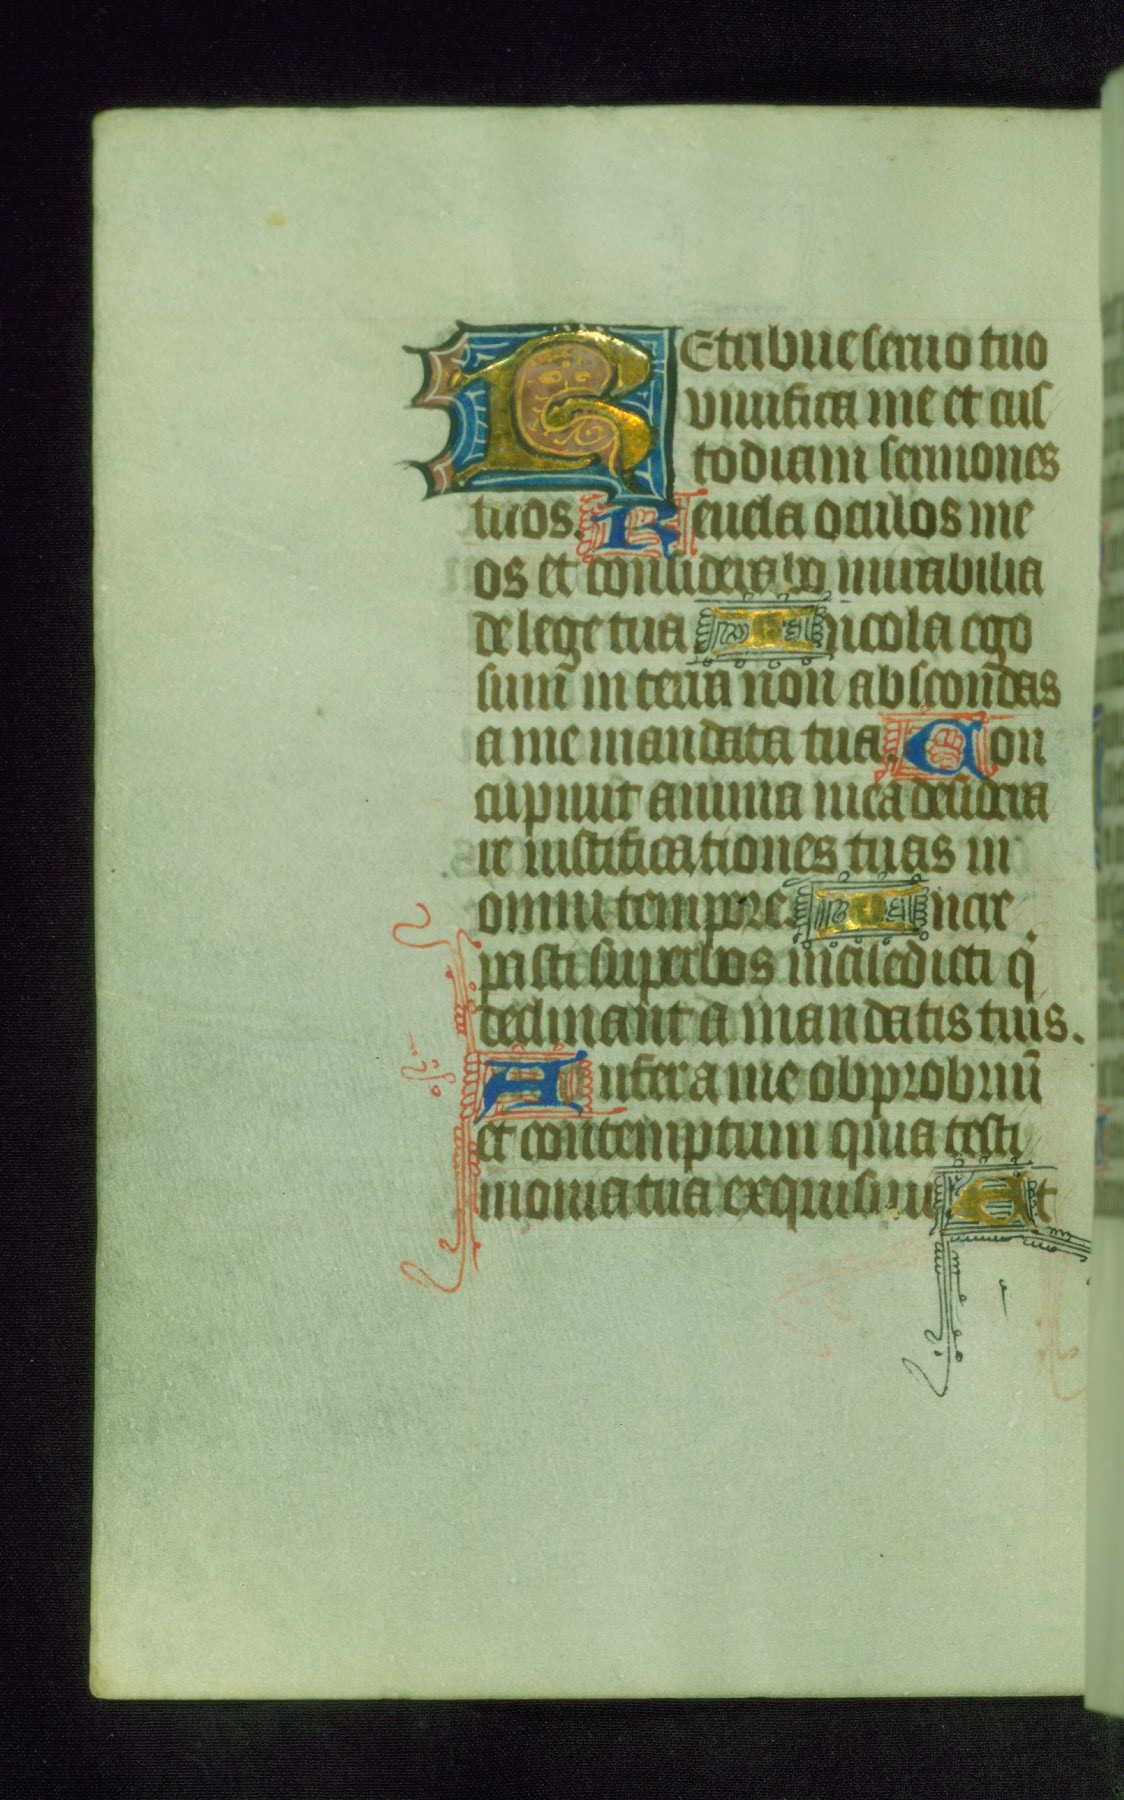 REtribue seruo tuo
viuifica me et cus
todiam sermones
tuos. Reuela oculos me
os et considerabo mirabilia
de lege tua Incola ego
sum in terra non abscondas
a me mandata tua. Con
cupiuit anima mea desidera
re iustificationes tuas in
omni tempore Incre
pasti superbos maledicti q̇
declinant a mandatis tuis.
Aufer a me obprobriū
et contemptum quia testi
monia tua exquisiui Et